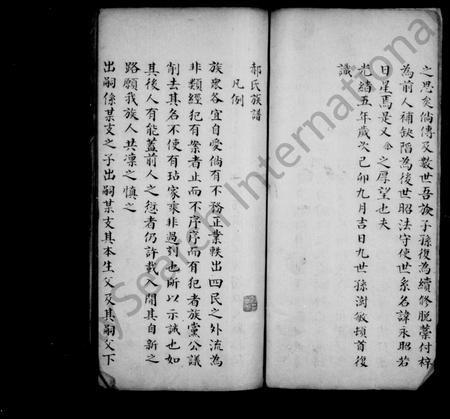 之思矣倘傳及數世吾族子孫復為續修脫藁付梓
為前人補缺陷為後世昭法守使世系名諱永昭若
日星焉是又余之厚望也夫
光緒五年歲次己卯九月吉日九世孫澍敏頓首後
識
郝氏族譜
凡例
族眾各宜自愛倘有不務正業軼出四民之外流為
非類經犯有案者止而不序序而有犯者族黨公議
削去其名不使有玷家乘非過刻也所以示誡也如
其後人有能蓋前人之愆者仍許載入開其自新之
路願我族人共凛之慎之
出嗣係某支之子出嗣某支其本生父及其嗣父下
FamilySearch International